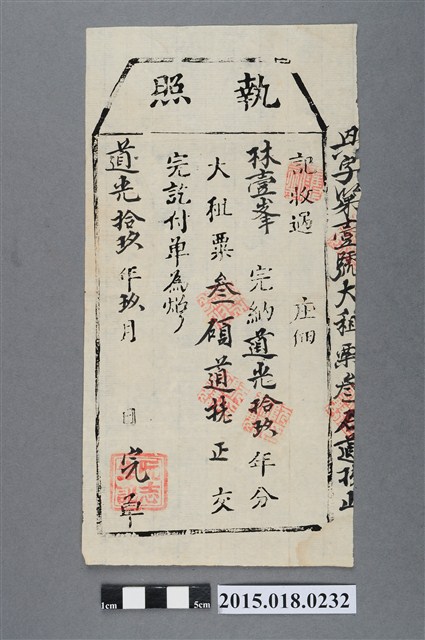 執照
字第壹號大租粟叁石道正
記收過 庄佃
林壹峯 完納道光拾玖年分
大租粟叁碩道正交
完訖付单為炤
道光拾玖年玖月 日 完单
1cm 5cm
2015.018.0232